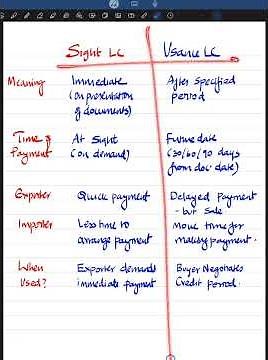 Sight LC
Usance LC
Meaning
Immediate
(on presentation
of documents)
After specified
period
Time of
Payment
At Sight
(on demand)
Future date
(30/60/90 days
from doc. date)
Exporter
Quick payment
Delayed Payment
- but Safe.
Importer
Less time to
arrange payment
More time for
making payment.
When
Used?
Exporter demands
immediate payment
Buyer Negotiates
Credit Period.